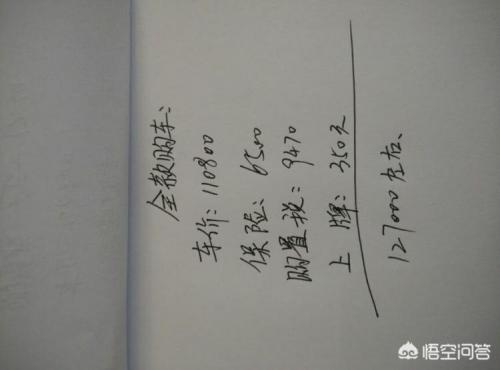 全款购车：
车价：110800
保险：6500
购置税：9470
上牌：350元
127000左右、
悟空问答